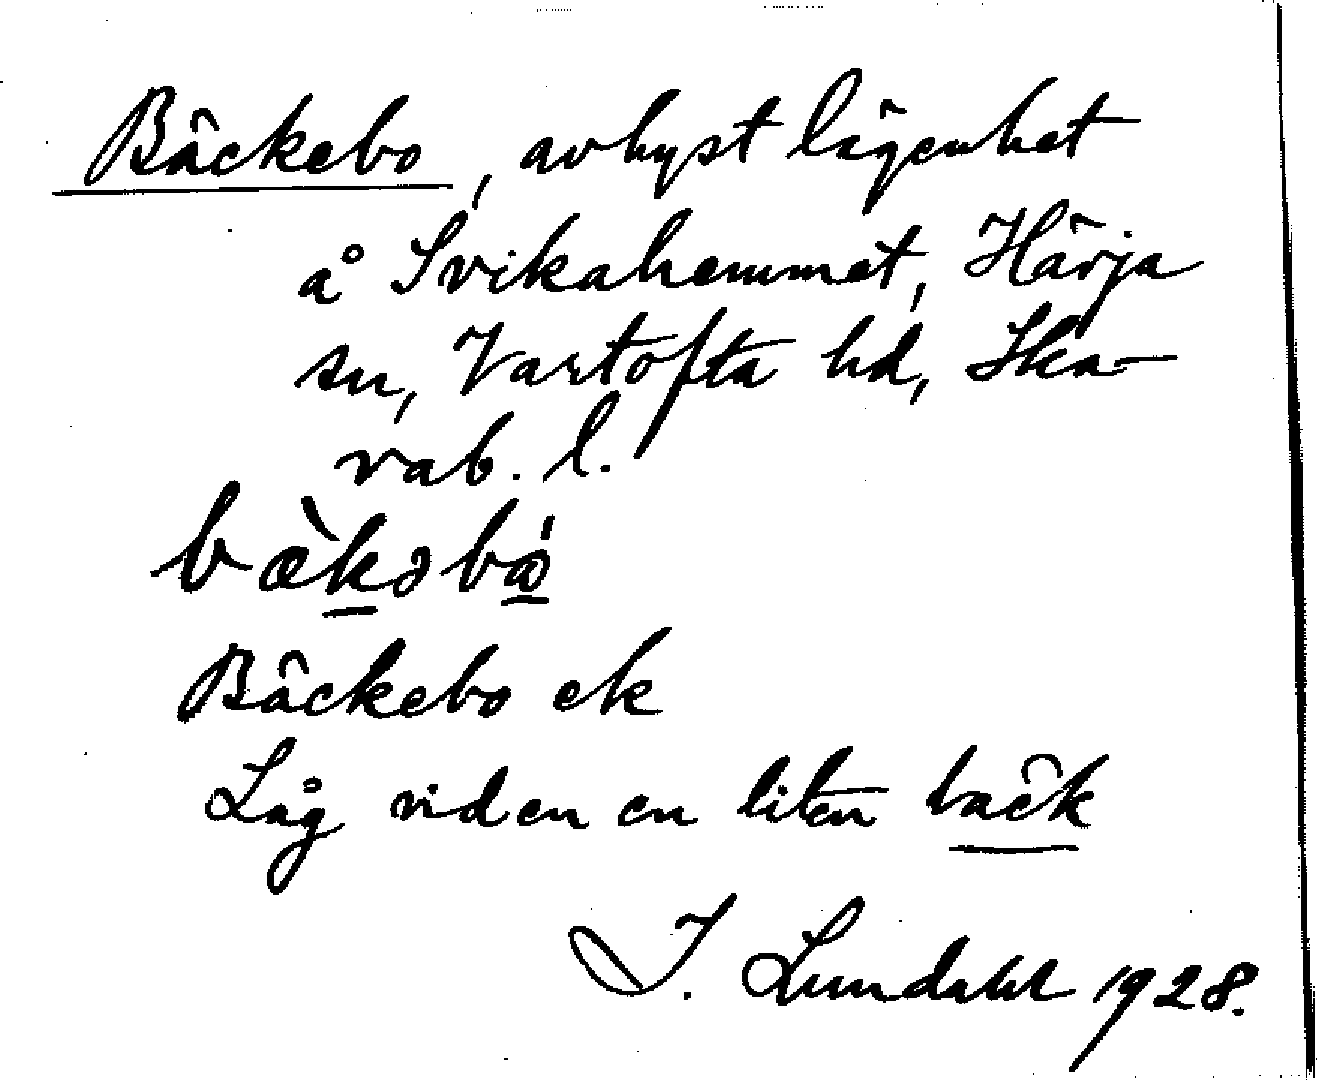 Bäckebo, avhyst lägenhet
å Svikahemmet, Härja
sn, Vartofta hd, Ska-
rab. l.
bæ̀kəbó
Bäckebo ek
Låg vid en en liten bäck
I. Lundahl 1928.